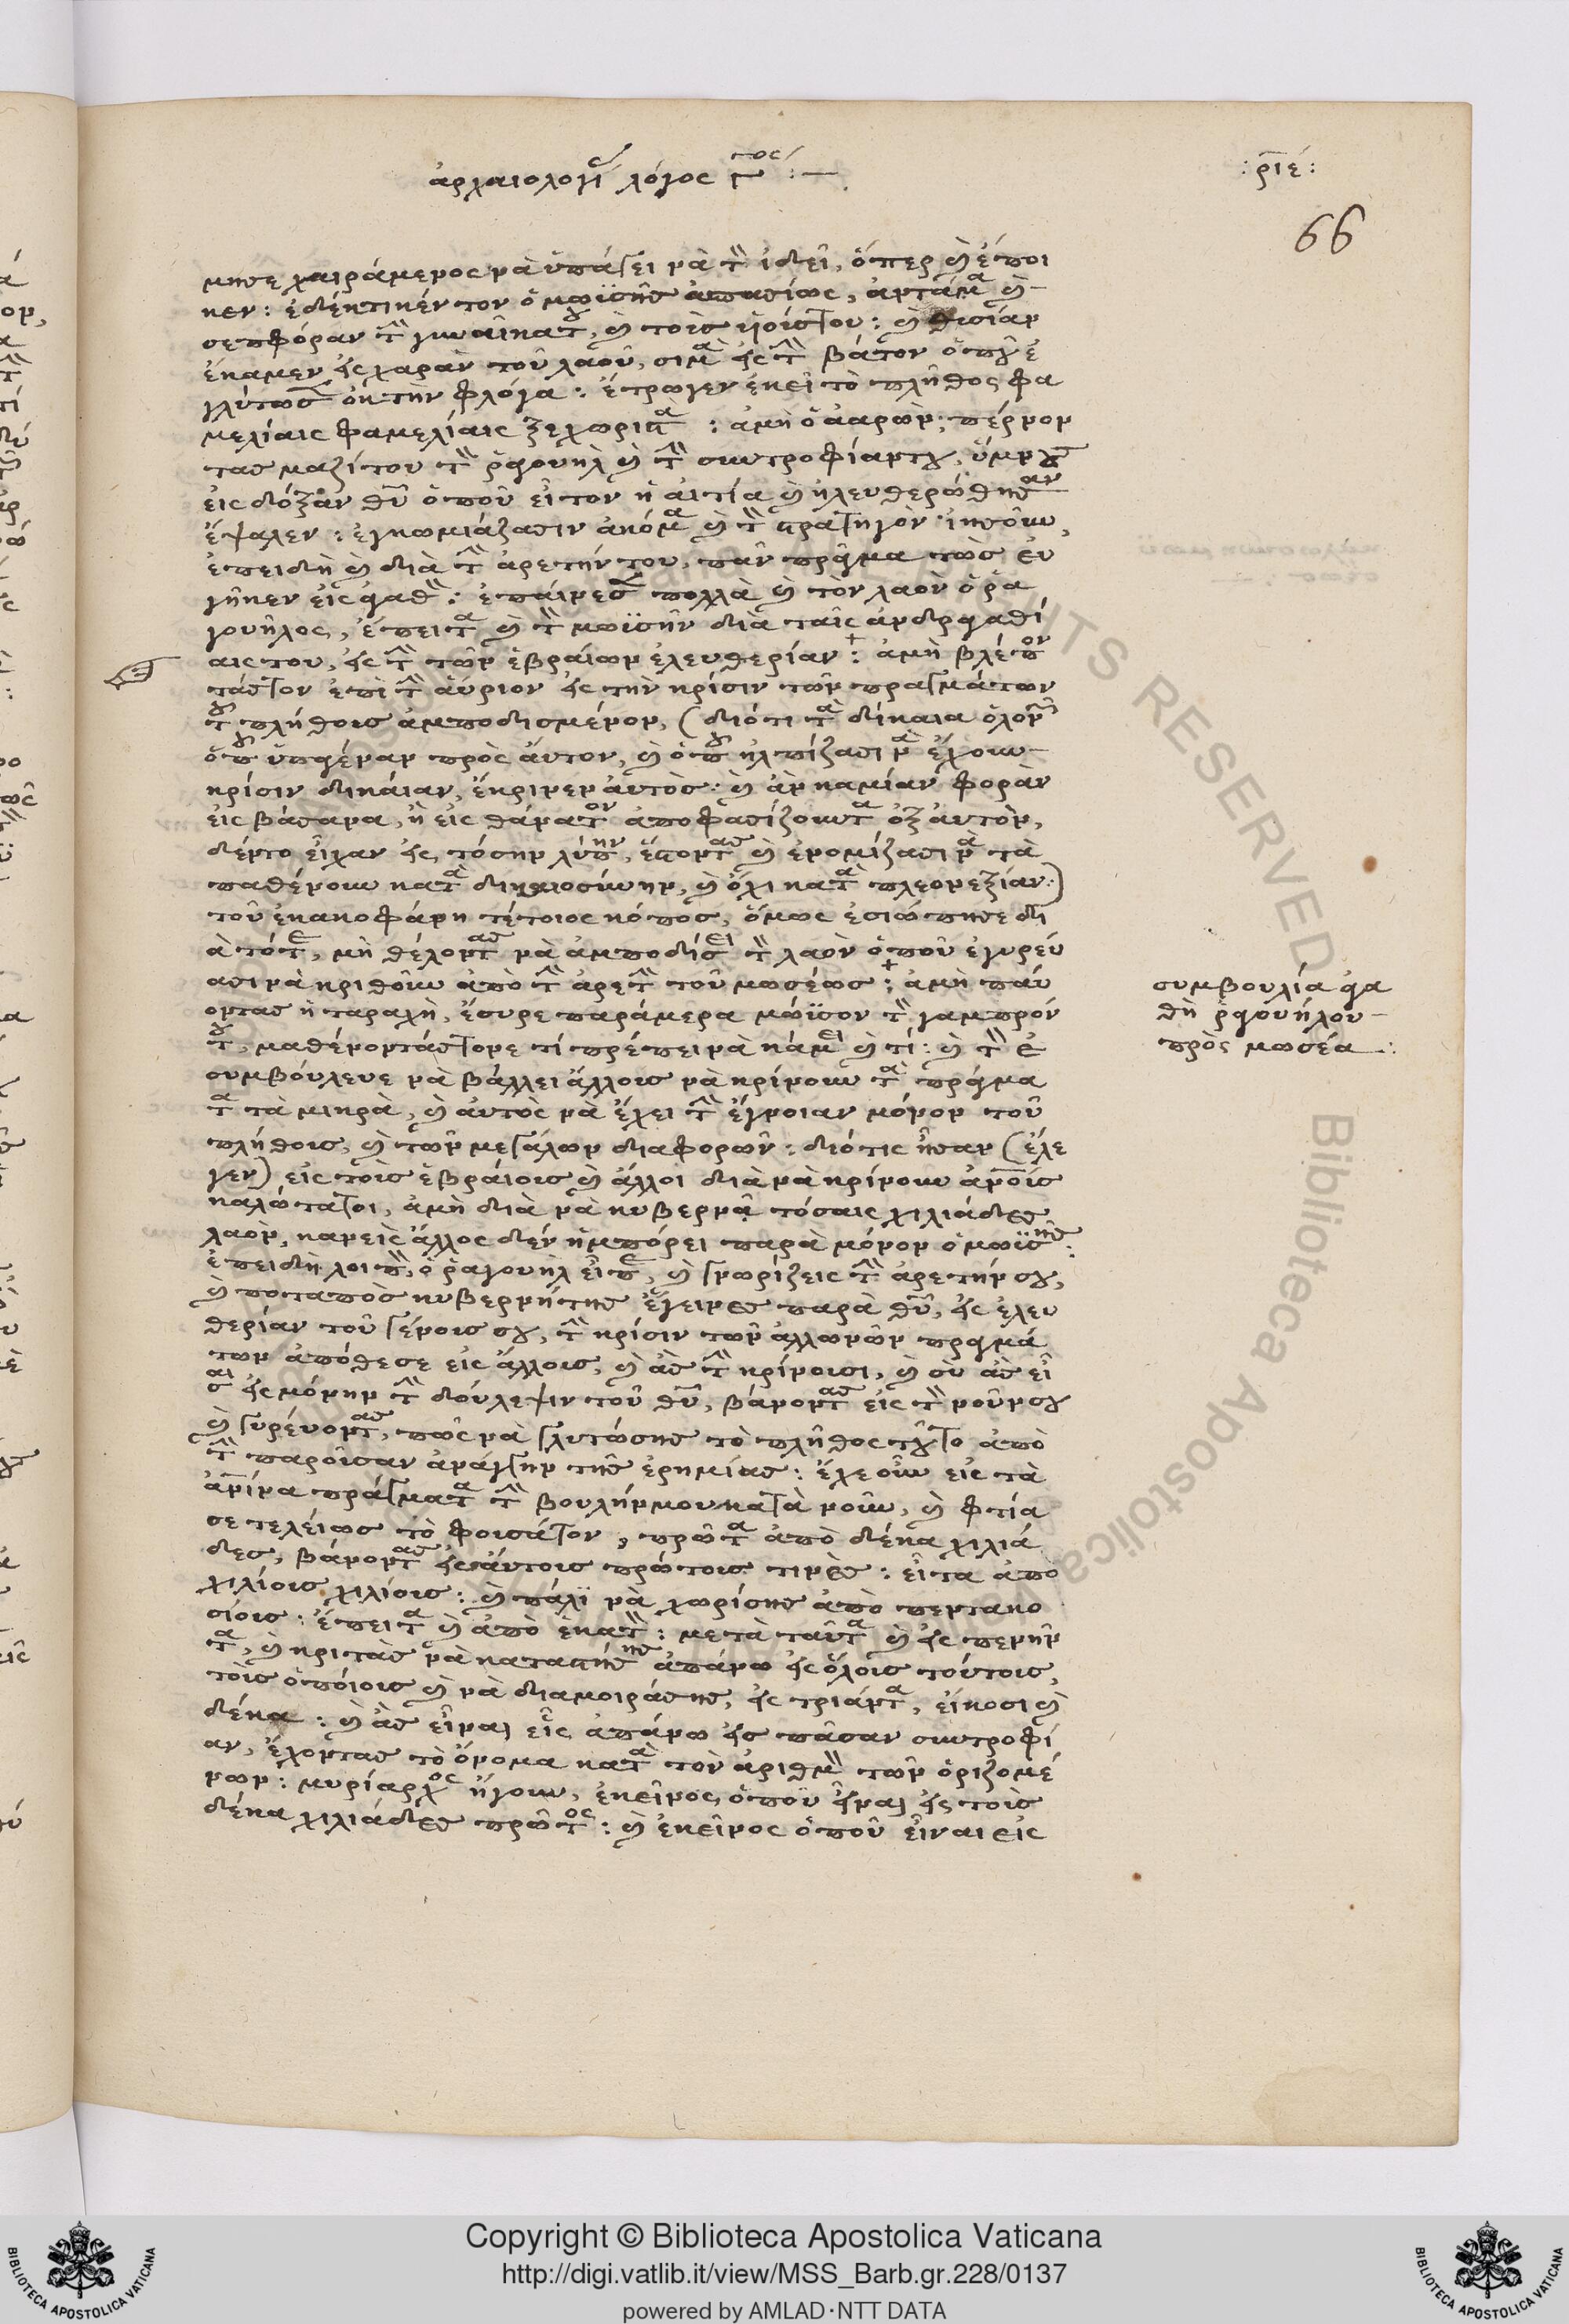 ἀρχαιολογί λόγος γ τος :—
:ριέ:
66
μησε χαιράμενος νὰ ὑπάγει νὰ τὸν ἰδεῖ, ὅπερ καὶ ἔποι
κεν: ἐδέκτικέν τον ὁ μωϋσῆς ἀσπασίως, ἀντάμα καὶ
σεπφόραν τὴν γυναῖκα του, καὶ τοὺς υἱοίς του: καὶ θυσίαν
ἔκαμεν εἰς χαρὰν τοῦ λαοῦ, σιμὰ εἰς τὴν βάτον ὁποῦ ἐ
γλύτωσεν ἐκ τὴν φλόγα: ἔτρωγεν ἐκεῖ τὸ πλῆθος φα
μελίαις φαμελίαις ξεχωριστὰ: ἀμὴ ὁ ἀαρὼν, πέρνον
τας μαζί του τὸν ῥαγουὴλ καὶ τὴν συντροφίαν του, ὕμνους
εἰς δόξαν θῦ ὁποῦ εἶτον ἡ αἰτία καὶ ἠλευθερώθησαν
ἔψαλεν: ἐγκωμιάζασιν ἀκόμα καὶ τὸν στρατηγὸν ἰησοῦν,
ἐπειδὴ καὶ διὰ τὴν ἀρετήν του, πᾶν πρᾶγμα τῶς εὐ
γῆκεν εἰς ἀγαθὸν: ἐπαίνεσεν πολλὰ καὶ τὸν λαὸν ὁ ῥα
γουῆλος, ἔπειτα καὶ τὸν μωϋσῆν διὰ ταῖς ἀνδραγαθί
αις του, εἰς τὴν τῶν ἑβραίων ἐλευθερίαν: ἀμὴ βλέπον
τάς τον ἐπὶ τὴν αὔριον εἰς τὴν κρίσιν τῶν πραγμάτων
τοῦ πλήθους ἀμποδισμένον, (διότι τὰ δίκαια ὁλονῶν
ὁποῦ ὑπαγέναν πρὸς αὐτον, καὶ ὁποῦ ἠλπίζασι νὰ ἔχουν
κρίσιν δικαίαν, ἔκρινεν αὐτὸς: καὶ ἂν καμίαν φορὰν
εἰς βάσανα, ἢ εἰς θάνατον ἀποφασίζουντα ἐξ αὐτὸν,
δέν το εἶχαν εἰς τόσην λύπην, ἔστοντας καὶ ἐνομίζασι νὰ τὰ
παθένουν κατὰ δικαιοσύνην, καὶ ὄχι κατὰ πλεονεξίαν:)
τοῦ ἐκακοφάνη τέτοιος κόπος, ὅμως ἐσιώπησε δι
ὰ τότε, μὴ θέλοντας νὰ ἀμποδίσει τὸν λαὸν ὁποῦ ἐγυρεύ
ασι νὰ κριθοῦν ἀπὸ τὴν ἀρετὴν τοῦ μωσέως: ἀμὴ παύ
οντας ἡ ταραχὴ, ἔσυρε παράμερα μώϋσον τὸν γαμπρόν
του, μαθένοντάς τονε τί πρέπει νὰ κάμει καὶ τί: καὶ τὸν ἐ
συμβούλευε νὰ βάλλει ἄλλους νὰ κρίνουν τὰ πράγμα
τα τὰ μικρὰ, καὶ αὐτὸς νὰ ἔχει τὴν ἔγνοιαν μόνον τοῦ
πλήθους, καὶ τῶν μεγάλων διαφορῶν: διότις ἦσαν (ἔλε
γεν) εἰς τοὺς ἑβραίους καὶ ἄλλοι διὰ νὰ κρίνουν ἀυτοὺς
καλώτατοι, ἀμὴ διὰ νὰ κυβερνᾷ τόσαις χιλιάδες
λαὸν, κανεὶς ἄλλος δὲν ἠμπόρει παρὰ μόνον ὁ μωϋσῆς:
ἐπειδὴ λοιπὸν, ὁ ῥαγουὴλ εἶπε, καὶ γνωρίζεις τὴν ἀρετήν σου,
καὶ ποταπὸς κυβερνήτης ἔγεινες παρὰ θῦ, εἰς ἐλευ
θερίαν τοῦ γένους σου, τὴν κρίσιν τῶν ἀλλωνῶν πραγμά
των ἀπόθεσε εἰς ἄλλους, καὶ ἂς τὴν κρίνουσι, καὶ σὺ ἂς εἶ
σαι εἰς μόνην τὴν δούλεψιν τοῦ θῦ, βάνοντας εἰς τὸν νοῦν σου
καὶ γυρεύοντας, πῶς νὰ γλυτώσης τὸ πλῆθος τοῦτο ἀπὸ
τὴν παροῦσαν ἀνάγκην τῆς ἐρημίας: ἔχε οὖν εἰς τὰ
ἀνθρώπινα πράγματα τὴν βουλήν μου κατὰ νοῦν, καὶ φτία
σε τελείως τὸ φουσάτον, πρῶτα ἀπὸ δέκα χιλιά
δες, βάνοντας εἰς αὐτους πρώτους τινὲς: εἶτα ἀπὸ
χιλίους χιλίους: καὶ πάλϊ νὰ χωρίσης ἀπὸ πεντακο
σίους: ἔπειτα καὶ ἀπὸ ἑκατὸν: μετὰ ταῦτα καὶ εἰς πενῆν
τα, καὶ κριτὰς νὰ καταστήσης ἀπάνω εἰς ὅλους τούτους,
τοὺς ὁποίους καὶ νὰ διαμοιράσης, εἰς τριάντα, εἴκοσι καὶ
δέκα: καὶ ἂς εἶναι εἷς ἀπάνω εἰς πᾶσαν συντροφί
αν, ἔχοντας τὸ ὄνομα κατὰ τὸν ἀριθμὸν τῶν ὁριζομέ
νων: μυρίαρχος ἤγουν, ἐκεῖνος ὁποῦ εἶναι εἰς τοὺς
δέκα χιλιάδες πρῶτος: καὶ ἐκεῖνος ὁποῦ εἶναι εἰς
συμβουλία ἀγα
θὴ ῥαγουήλου
πρὸς μωσέα :
Copyright © Biblioteca Apostolica Vaticana
http://digi.vatlib.it/view/MSS_Barb.gr.228/0137
powered by AMLAD·NTT DATA